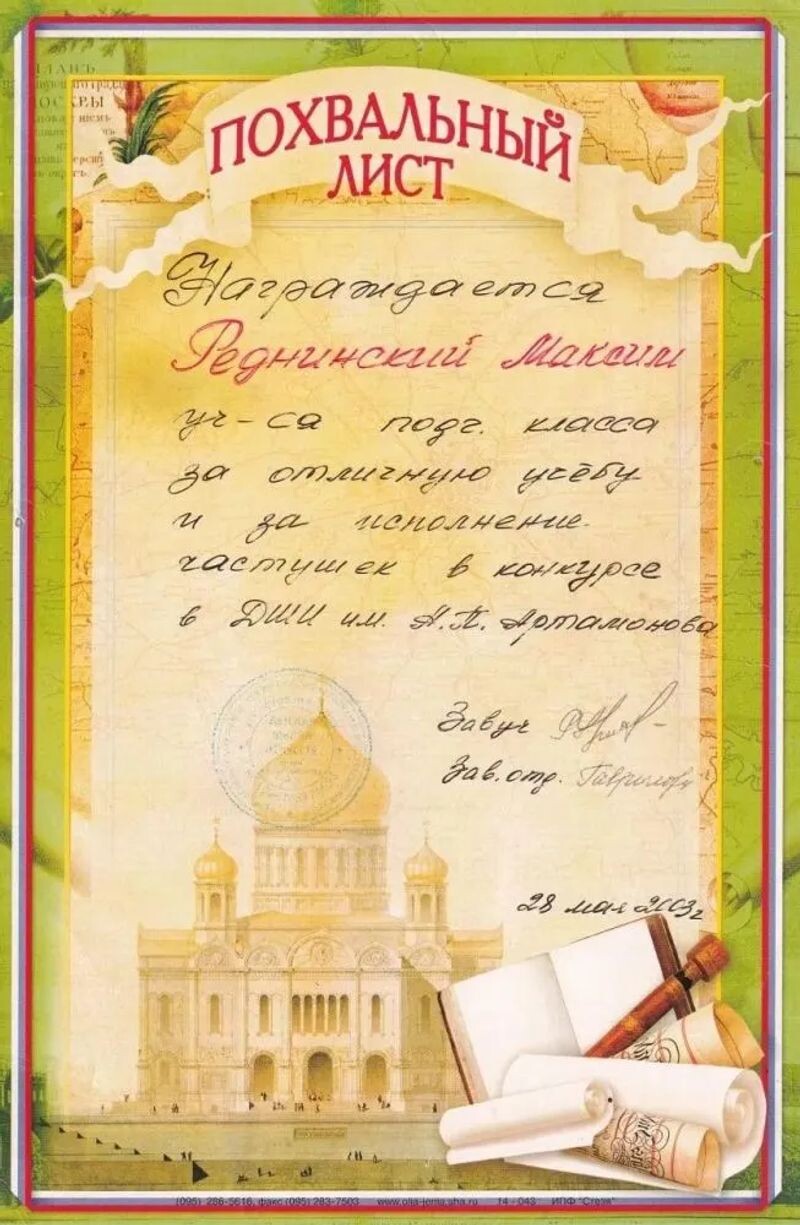 ПОХВАЛЬНЫЙ
ЛИСТ
Награждается
Реднинский Максим
уч-ся подг. класса
за отличную учёбу
и за исполнение
частушек в конкурсе
в ДШИ им. А.П. Артамонова
Завуч
Зав. отд. Гаврилова
28 мая 2003г
(095) 286-5616, факс (095) 283-7503 14-043 ИПФ